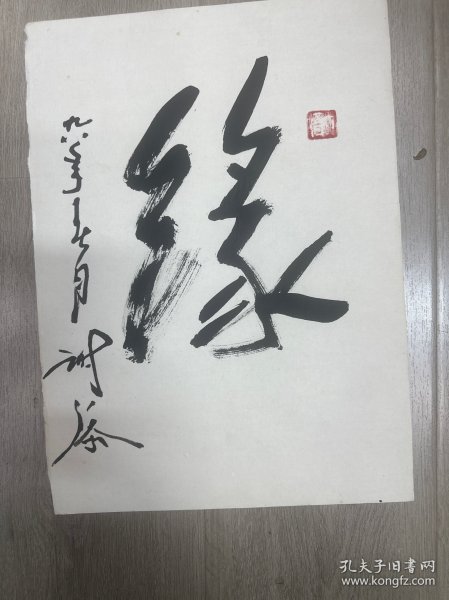 緣
九八年 月
謝添
孔夫子旧书网
www.kongfz.com